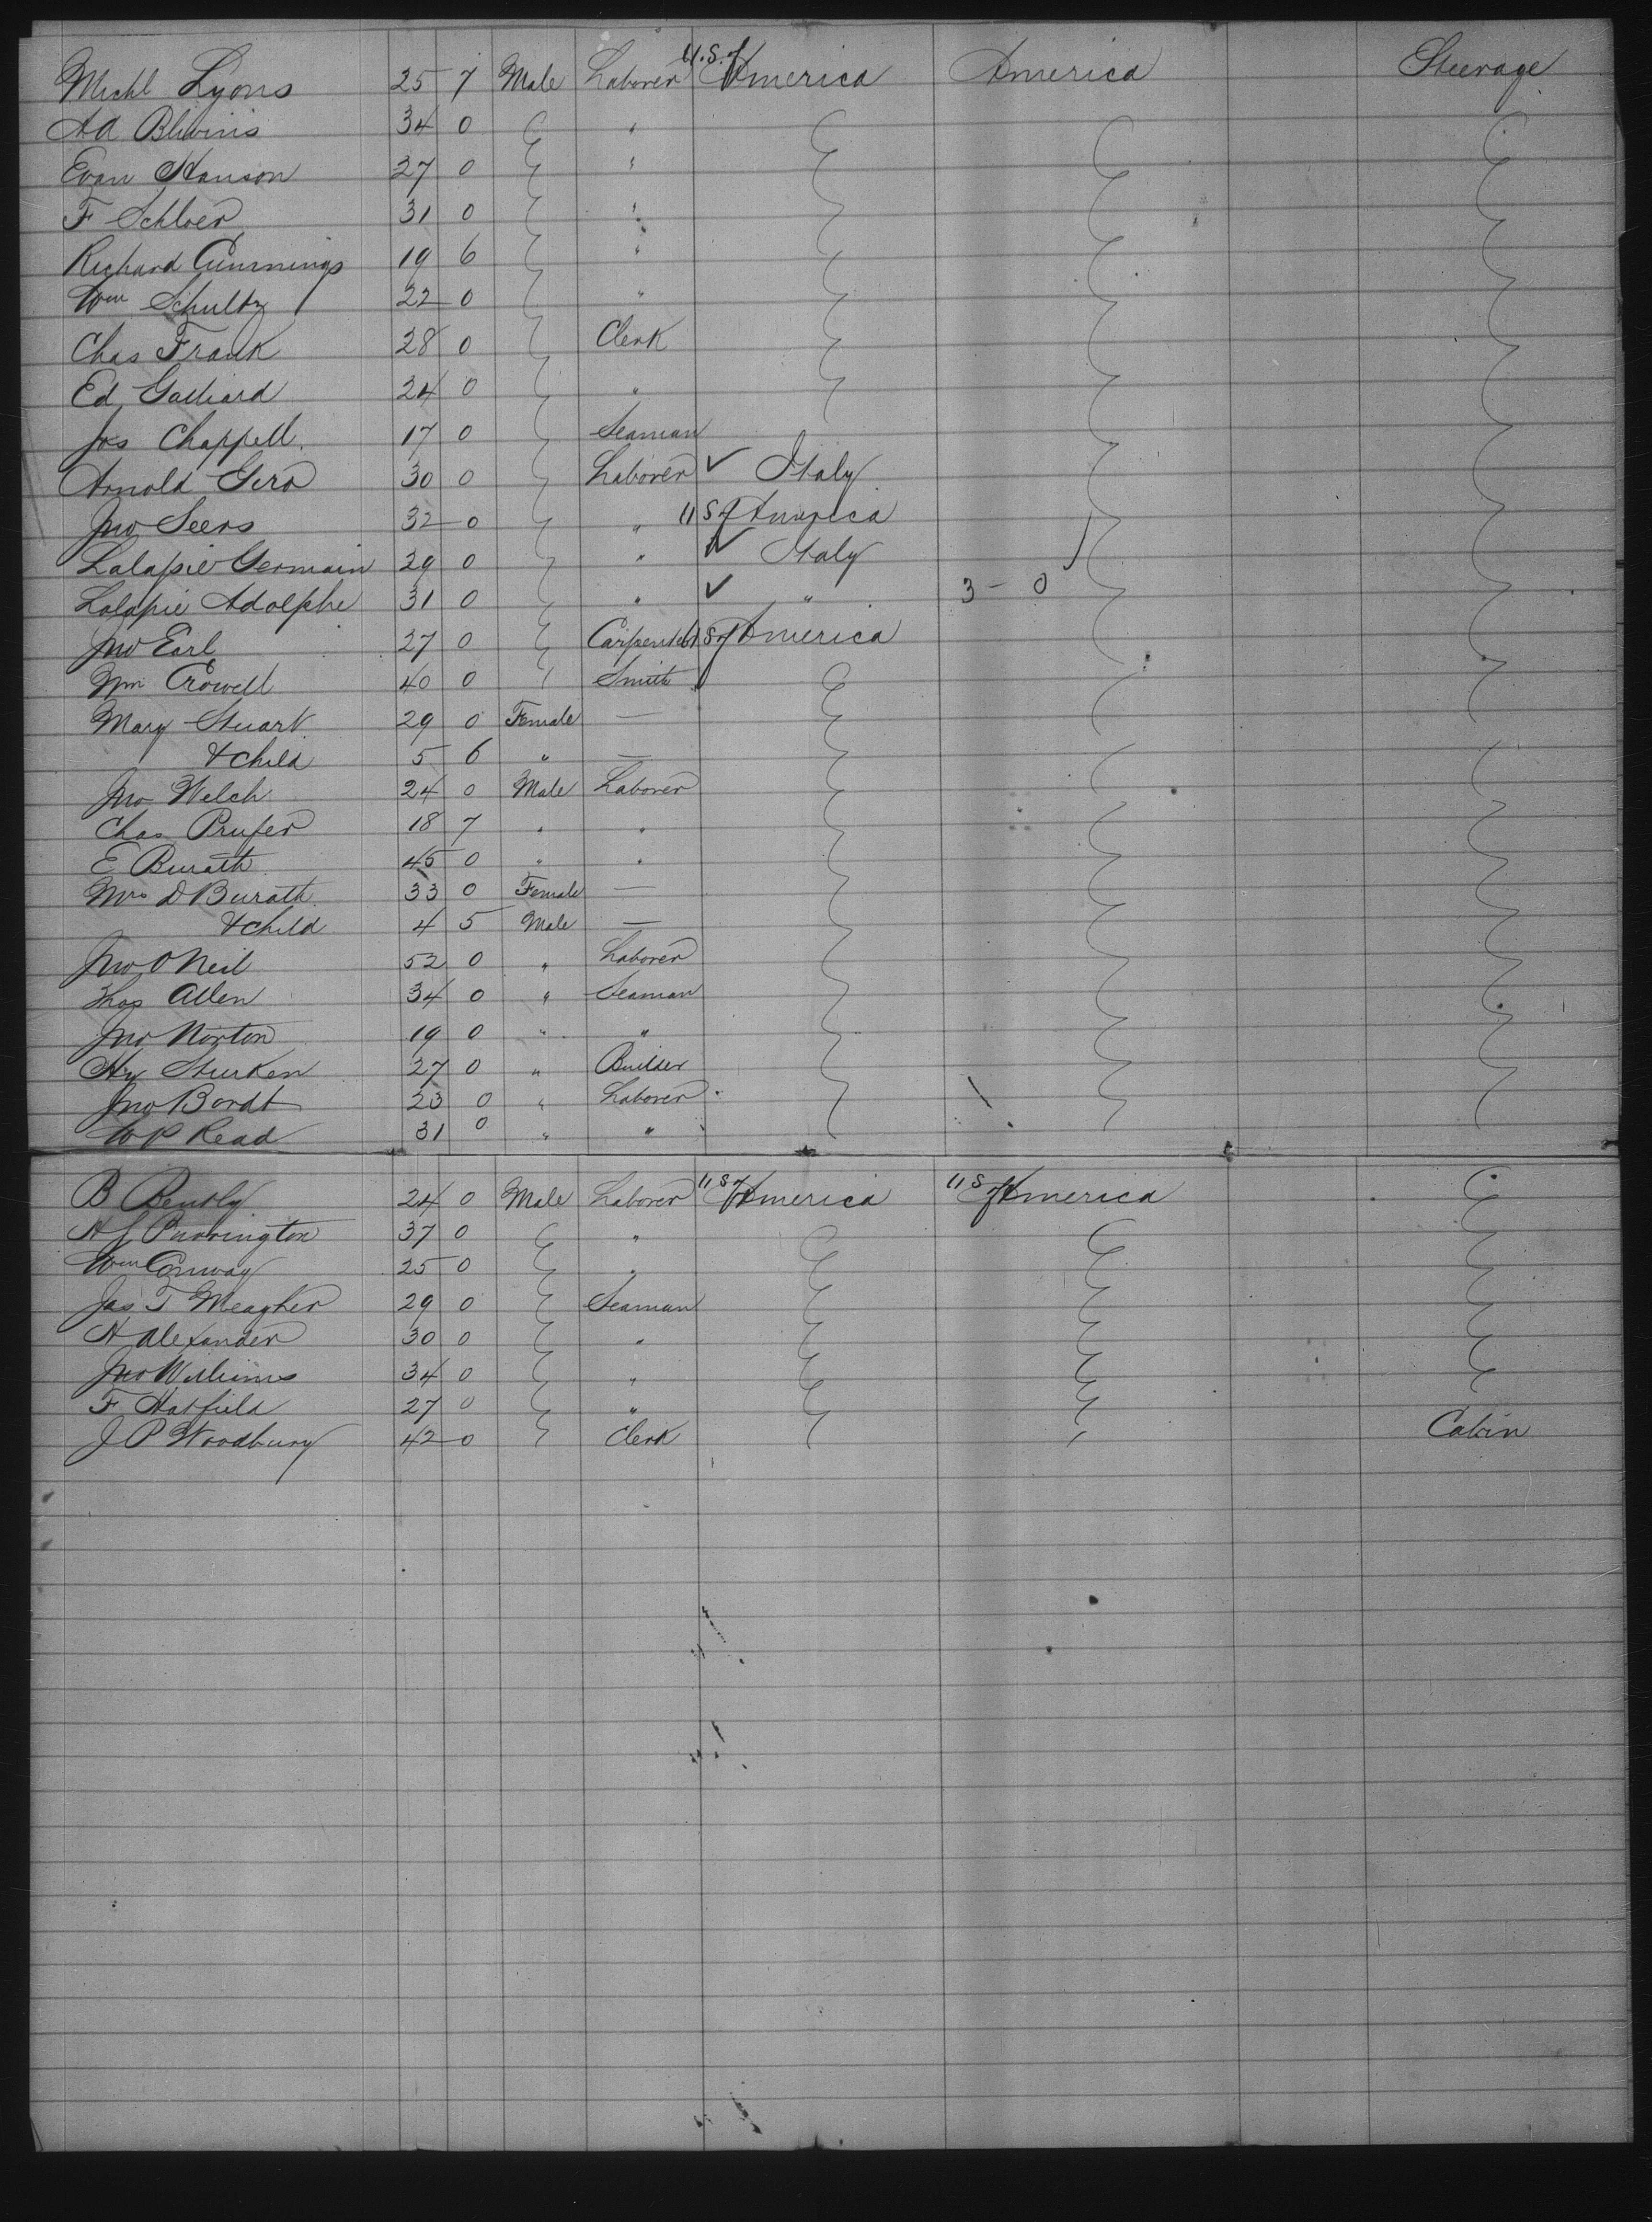 Michl Lyons 25 7 Male Laborer U.S. of America America Steerage
A A Blivins 34 0 "
Evan Hanson 27 0 "
F Schloer 31 0 "
Richard Cummings 19 6 "
Wm Schultz 22 0 "
Chas Frank 28 0 Clerk
Ed Galliard 24 0 "
Jos Chappell 17 0 Seaman
Arnold Gero 30 0 Laborer ✓ Italy
Jno Seers 32 0 " U S of America
Lalapie Germain 29 0 " ✓ Italy
Lalapie Adolphe 31 0 " ✓ " 3 - 0
Jno Earl 27 0 Carpenter U S of America
Wm Crowell 40 0 Smith
Mary Stuart 29 0 Female —
& child 5 6 " —
Jno Welch 24 0 Male Laborer
Chas Prufer 18 7 " "
E Burath 45 0 " "
Mrs D Burath 33 0 Female —
& child 4 5 Male —
Jno O Neil 52 0 " Laborer
Thos Allen 34 0 " Seaman
Jno Norton 19 0 " "
Hy Sturken 27 0 " Builder
Jno Bordt 23 0 " Laborer
W P Read 31 0 " "
B Bently 24 0 Male Laborer U S of America U S of America
H L Purrington 37 0 "
Wm Conway 25 0 "
Jas T Meagher 29 0 Seaman
H Alexander 30 0 "
Jno Williams 34 0 "
F Hatfield 27 0 "
J P Woodbury 42 0 Clerk Cabin